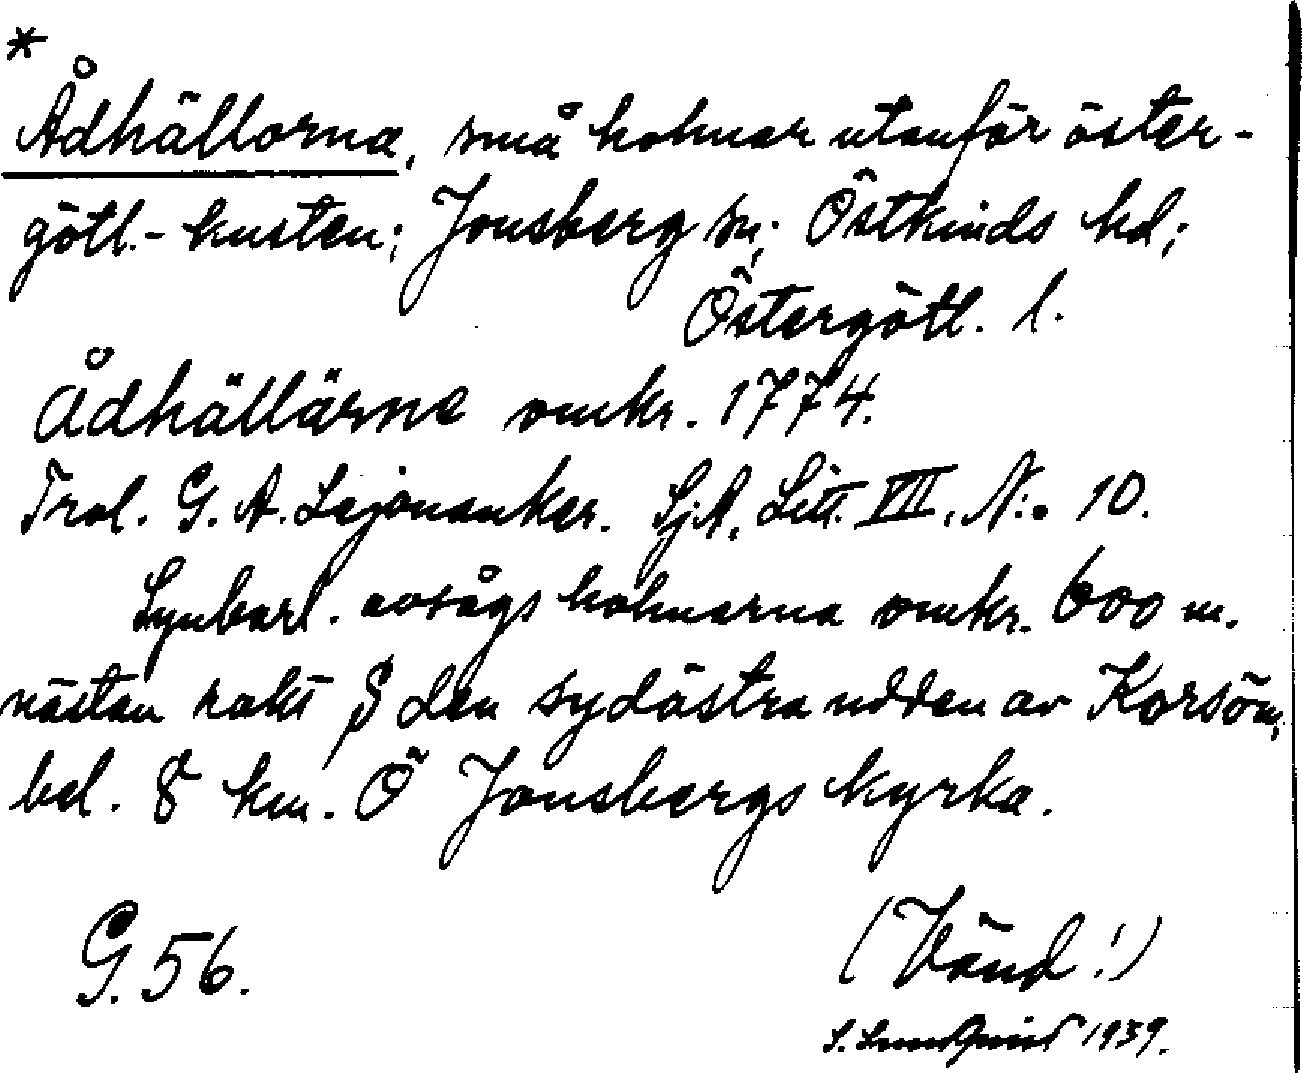 *
Ådhällorna, små holmar utanför öster-
götl.-kusten; Jonsberg sn; Östkinds hd;
Östergötl. l.
Ådhällärne omkr. 1774.
Trol. G. A. Lejonanker. SjA, Litt. VIII, N:o 10.
Synbarl. avsågs holmarna omkr. 600 m.
nästan rakt S den sydöstra udden av Korsön,
bel. 8 km. Ö Jonsbergs kyrka.
G. 56.
(Vänd!)
S. Lundquist 1939.